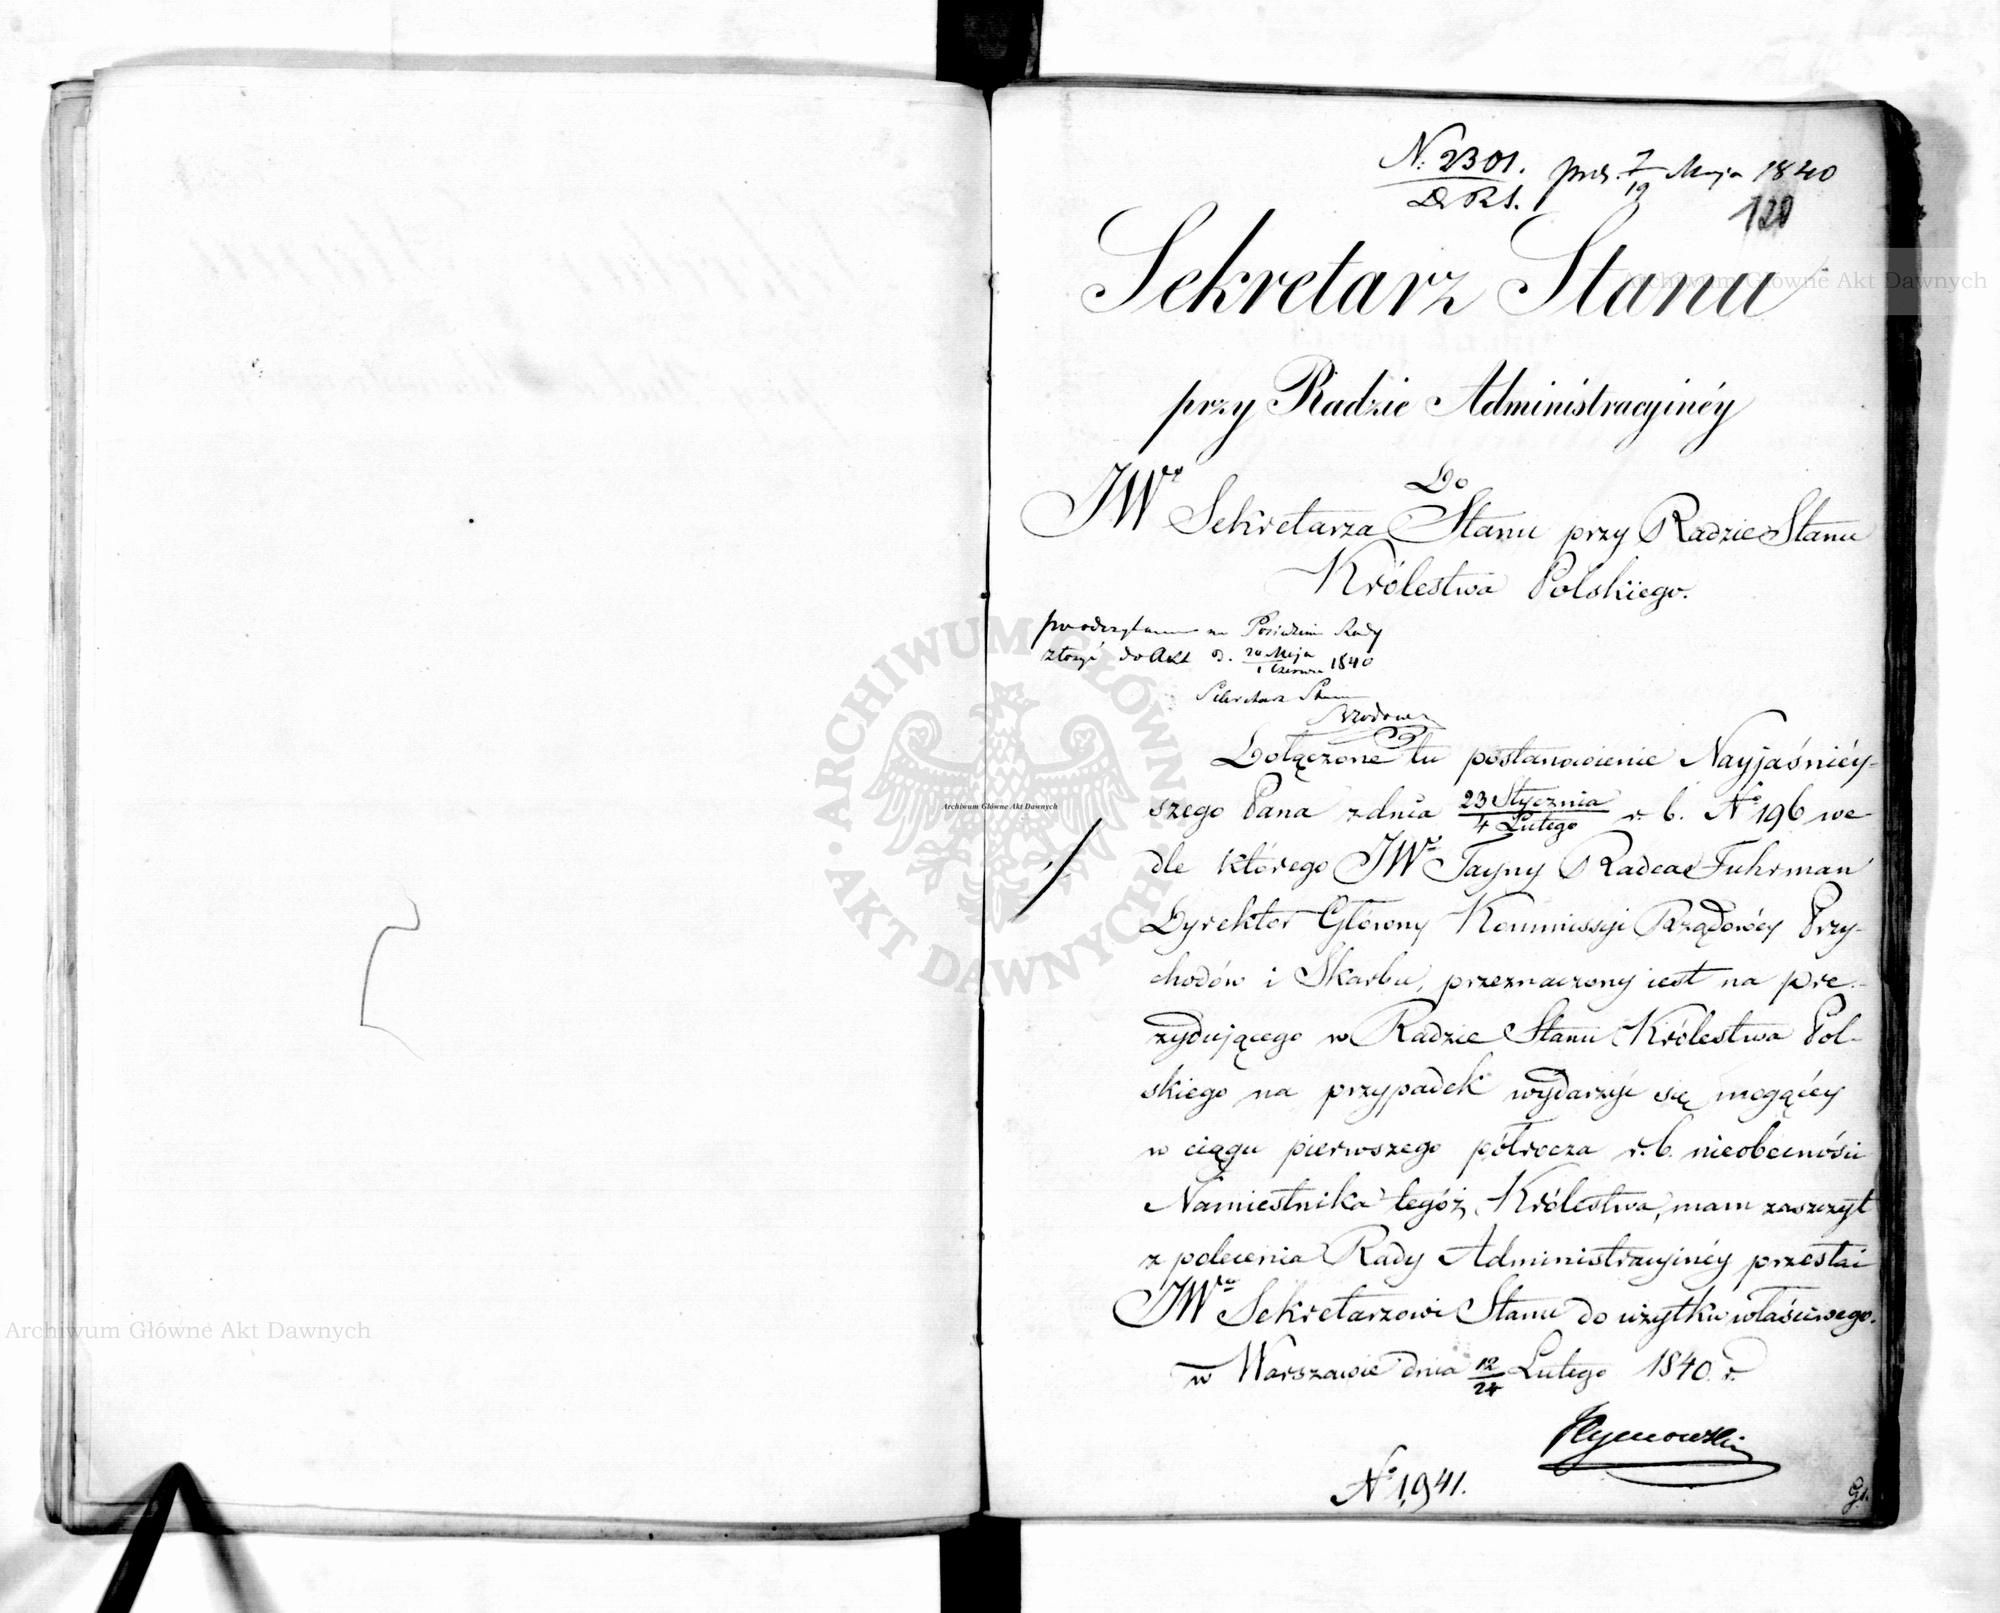 N. 2301. prez. 7/19 Maja 1840
D. R. S.
120
Sekretarz Stanu
przy Radzie Administracyinéy
Do
JWgo Sekretarza Stanu przy Radzie Stanu
Królestwa Polskiego.
po odczytaniu na Posiedzeniu Rady
złożyć do Akt d. 20 Maja/1 Czerwca 1840
Sekretarz Stanu
Brzozowski
Dołączone tu postanowienie Nayjaśniéy-
szego Pana z dnia 23 Stycznia/4 Lutego r. b. No 196 we
dle którego JWy Tayny Radca Fuhrman
Dyrektor Główny Kommissyi Rządowéy Przy-
chodów i Skarbu, przeznaczony iest na pre-
zydującego w Radzie Stanu Królestwa Pol-
skiego na przypadek wydarzyć się mogącéy
w ciągu pierwszego półrocza r. b. nieobecności
Namiestnika tegóż Królestwa, mam zaszczyt
z polecenia Rady Administracyinéy przesłać
JWmu Sekretarzowi Stanu do użytku właściwego.
w Warszawie dnia 12/24 Lutego 1840. r.
Tymowski
No 1,941.
Archiwum Główne Akt Dawnych
Archiwum Główne Akt Dawnych
Archiwum Główne Akt Dawnych
ARCHIWUM GŁÓWNE AKT DAWNYCH